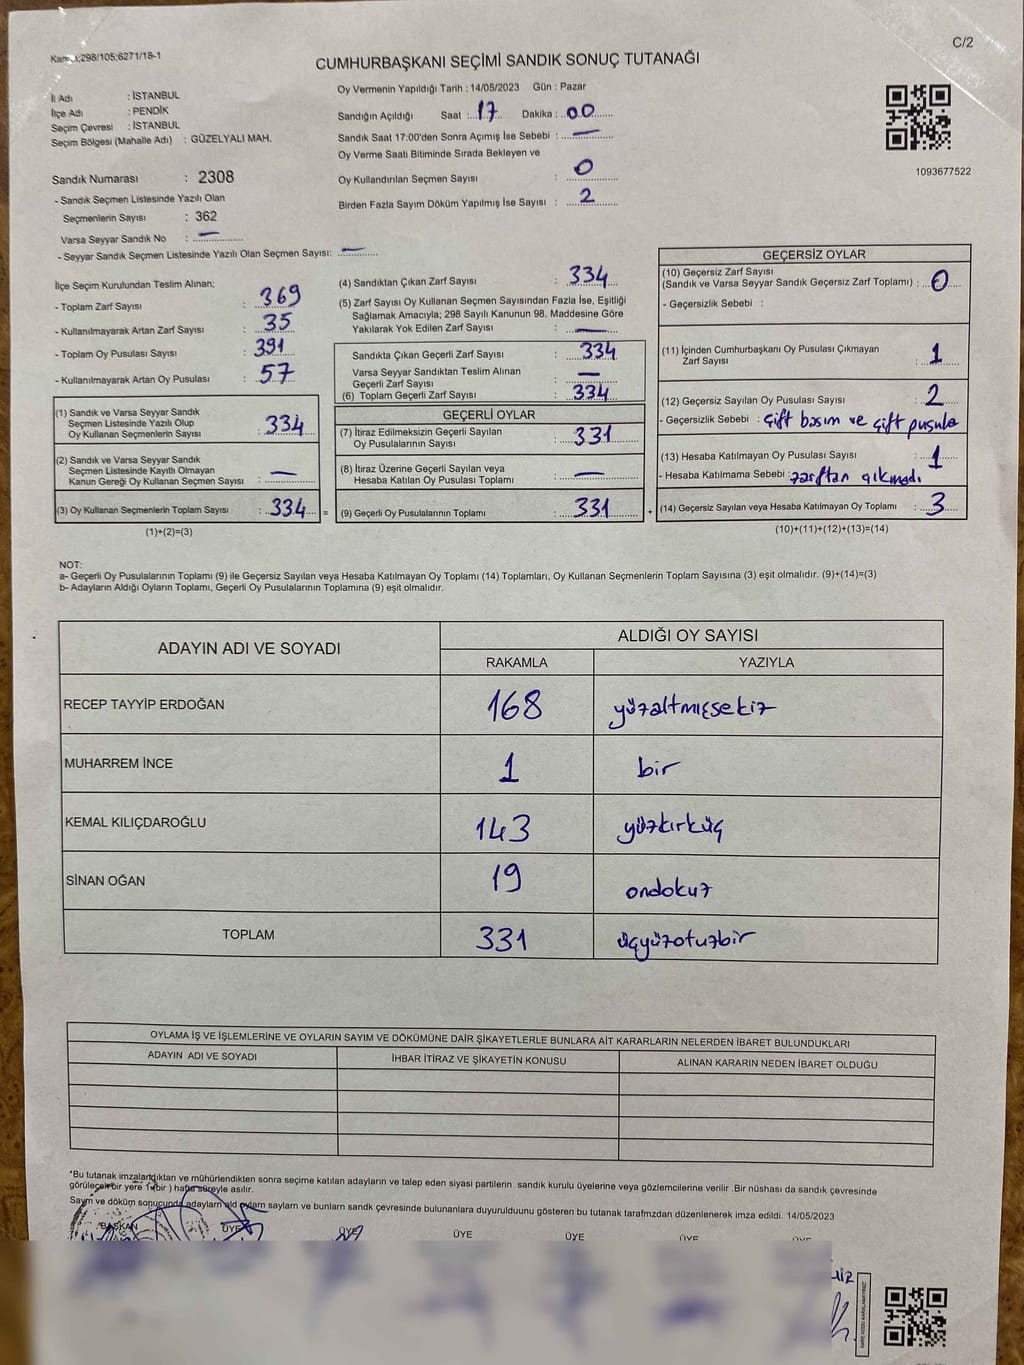 Kanun;298/105;6271/18-1
C/2
CUMHURBAŞKANI SEÇİMİ SANDIK SONUÇ TUTANAĞI
İl Adı : İSTANBUL
İlçe Adı : PENDİK
Seçim Çevresi : İSTANBUL
Seçim Bölgesi (Mahalle Adı) : GÜZELYALI MAH.
Oy Vermenin Yapıldığı Tarih : 14/05/2023 Gün : Pazar
Sandığın Açıldığı Saat : 17 Dakika : 00
Sandık Saat 17:00'den Sonra Açımış İse Sebebi : —
Oy Verme Saati Bitiminde Sırada Bekleyen ve
Oy Kullandırılan Seçmen Sayısı : 0
Birden Fazla Sayım Döküm Yapılmış İse Sayısı : 2
1093677522
Sandık Numarası : 2308
- Sandık Seçmen Listesinde Yazılı Olan
Seçmenlerin Sayısı : 362
Varsa Seyyar Sandık No : —
- Seyyar Sandık Seçmen Listesinde Yazılı Olan Seçmen Sayısı: —
İlçe Seçim Kurulundan Teslim Alınan;
- Toplam Zarf Sayısı : 369
- Kullanılmayarak Artan Zarf Sayısı : 35
- Toplam Oy Pusulası Sayısı : 391
- Kullanılmayarak Artan Oy Pusulası : 57
(1) Sandık ve Varsa Seyyar Sandık
Seçmen Listesinde Yazılı Olup
Oy Kullanan Seçmenlerin Sayısı : 334
(2) Sandık ve Varsa Seyyar Sandık
Seçmen Listesinde Kayıtlı Olmayan
Kanun Gereği Oy Kullanan Seçmen Sayısı : —
(3) Oy Kullanan Seçmenlerin Toplam Sayısı : 334 =
(1)+(2)=(3)
(4) Sandıktan Çıkan Zarf Sayısı : 334
(5) Zarf Sayısı Oy Kullanan Seçmen Sayısından Fazla İse, Eşitliği
Sağlamak Amacıyla; 298 Sayılı Kanunun 98. Maddesine Göre
Yakılarak Yok Edilen Zarf Sayısı : —
Sandıkta Çıkan Geçerli Zarf Sayısı : 334
Varsa Seyyar Sandıktan Teslim Alınan
Geçerli Zarf Sayısı : —
(6) Toplam Geçerli Zarf Sayısı : 334
GEÇERLİ OYLAR
(7) İtiraz Edilmeksizin Geçerli Sayılan
Oy Pusulalarının Sayısı : 331
(8) İtiraz Üzerine Geçerli Sayılan veya
Hesaba Katılan Oy Pusulası Toplamı : —
(9) Geçerli Oy Pusulalarının Toplamı : 331 +
GEÇERSİZ OYLAR
(10) Geçersiz Zarf Sayısı
(Sandık ve Varsa Seyyar Sandık Geçersiz Zarf Toplamı) : 0
- Geçersizlik Sebebi :
(11) İçinden Cumhurbaşkanı Oy Pusulası Çıkmayan
Zarf Sayısı : 1
(12) Geçersiz Sayılan Oy Pusulası Sayısı : 2
- Geçersizlik Sebebi : çift basım ve çift pusula
(13) Hesaba Katılmayan Oy Pusulası Sayısı : 1
- Hesaba Katılmama Sebebi : zarftan çıkmadı
(14) Geçersiz Sayılan veya Hesaba Katılmayan Oy Toplamı : 3
(10)+(11)+(12)+(13)=(14)
NOT:
a- Geçerli Oy Pusulalarının Toplamı (9) ile Geçersiz Sayılan veya Hesaba Katılmayan Oy Toplamı (14) Toplamları, Oy Kullanan Seçmenlerin Toplam Sayısına (3) eşit olmalıdır. (9)+(14)=(3)
b- Adayların Aldığı Oyların Toplamı, Geçerli Oy Pusulalarının Toplamına (9) eşit olmalıdır.
ADAYIN ADI VE SOYADI ALDIĞI OY SAYISI
RAKAMLA YAZIYLA
RECEP TAYYİP ERDOĞAN 168 yüzaltmışsekiz
MUHARREM İNCE 1 bir
KEMAL KILIÇDAROĞLU 143 yüzkırküç
SİNAN OĞAN 19 ondokuz
TOPLAM 331 üçyüzotuzbir
OYLAMA İŞ VE İŞLEMLERİNE VE OYLARIN SAYIM VE DÖKÜMÜNE DAİR ŞİKAYETLERLE BUNLARA AİT KARARLARIN NELERDEN İBARET BULUNDUKLARI
ADAYIN ADI VE SOYADI İHBAR İTİRAZ VE ŞİKAYETİN KONUSU ALINAN KARARIN NEDEN İBARET OLDUĞU
*Bu tutanak imzalandıktan ve mühürlendikten sonra seçime katılan adayların ve talep eden siyasi partilerin sandık kurulu üyelerine veya gözlemcilerine verilir .Bir nüshası da sandık çevresinde
görülecek bir yere 1 (bir ) hafta süreyle asılır.
Sayım ve döküm sonucunda adayların ald oyların saylam ve bunların sandık çevresinde bulunanlara duyurulduunu gösteren bu tutanak tarafmzdan düzenlenerek imza edildi. 14/05/2023
BAŞKAN ÜYE ÜYE ÜYE ÜYE ÜYE ÜYE